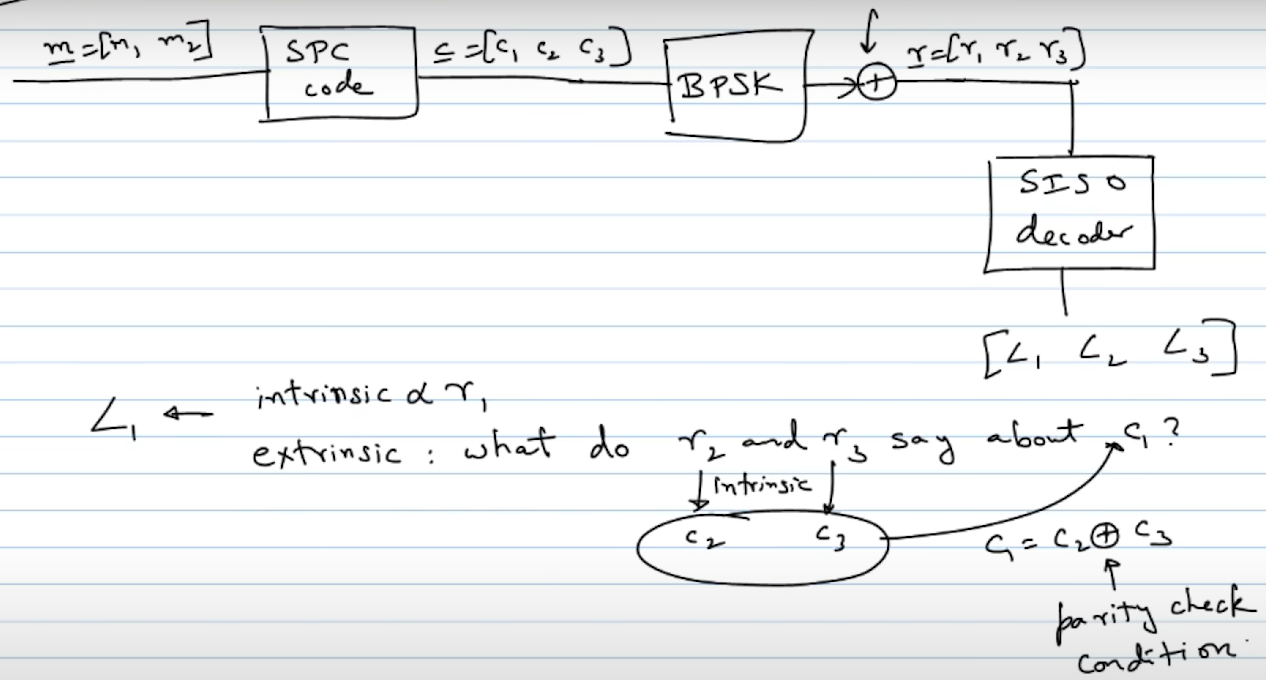 m=[m₁ m₂]
SPC code
c=[c₁ c₂ c₃]
BPSK
+
r=[r₁ r₂ r₃]
SISO
decoder
[L₁ L₂ L₃]
L₁ ← intrinsic α r₁
extrinsic : what do r₂ and r₃ say about c₁ ?
↓ intrinsic ↓
c₂ c₃
c₁ = c₂ ⊕ c₃
↑
parity check
condition.